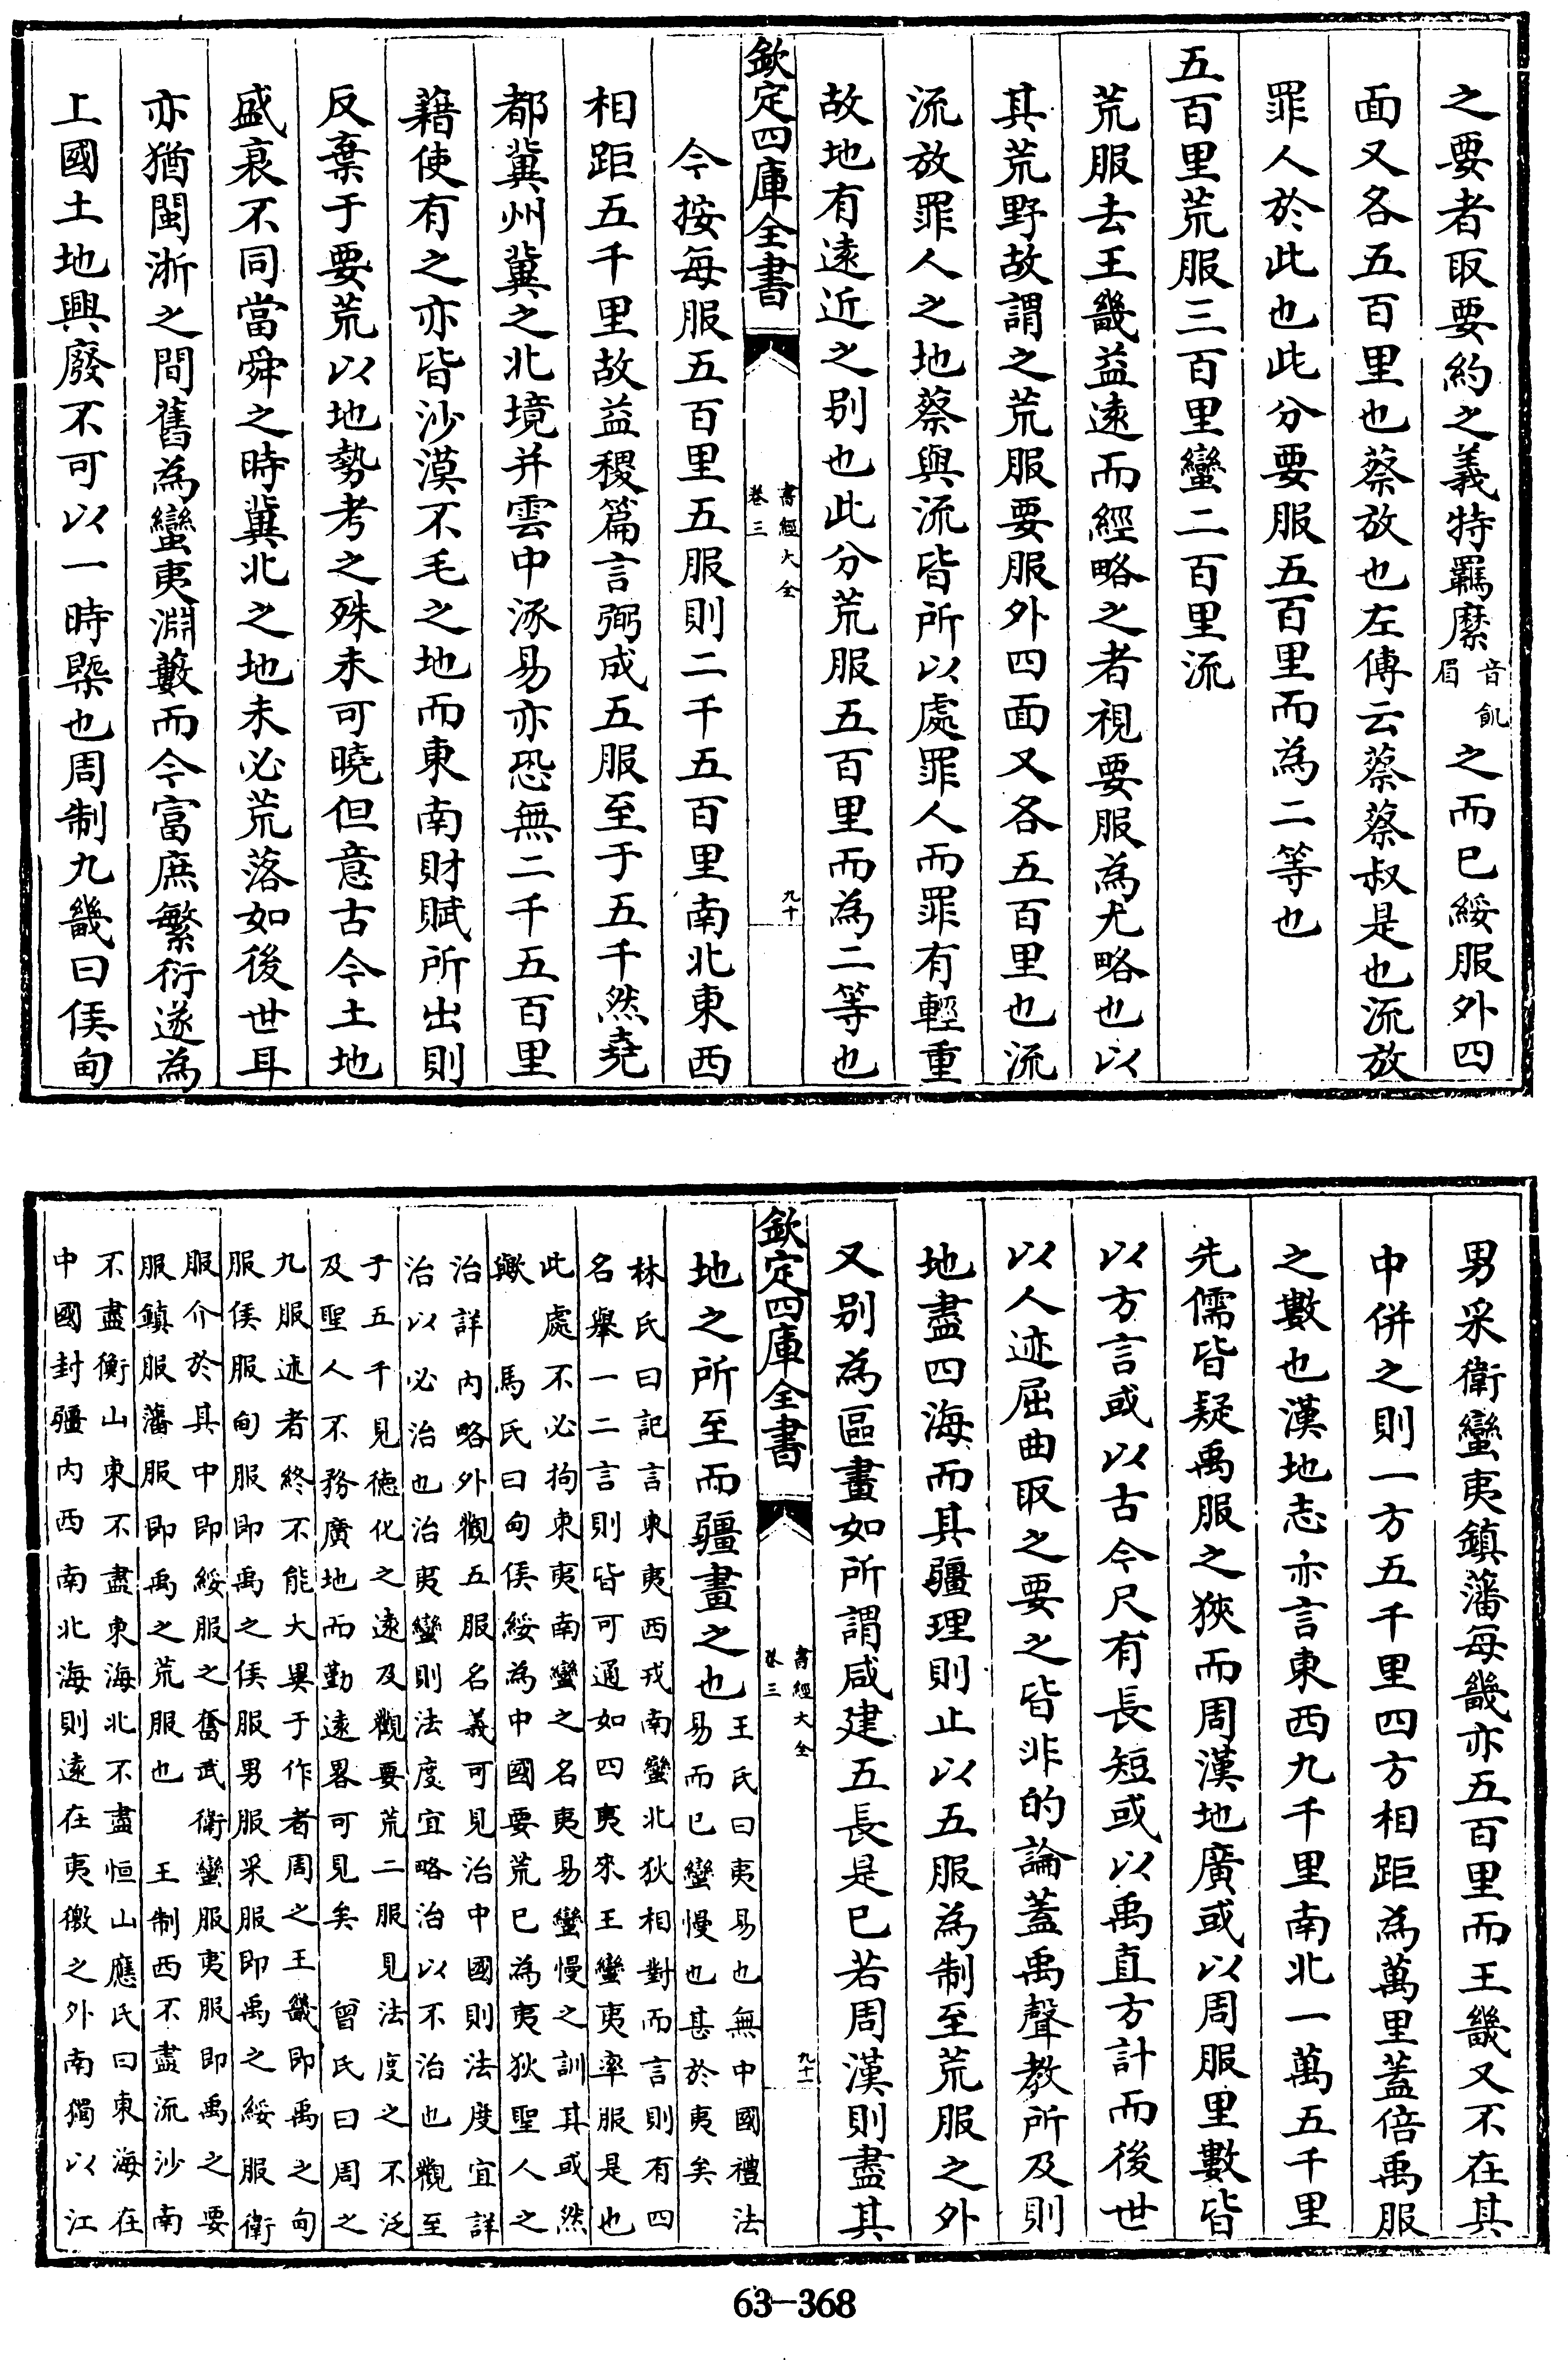 之要者取要約之義特羈縻音飢眉之而已綏服外四
面又各五百里也蔡放也左傳云蔡蔡叔是也流放
罪人於此也此分要服五百里而為二等也
五百里荒服三百里蠻二百里流
荒服去王畿益遠而經略之者視要服為尤略也以
其荒野故謂之荒服要服外四面又各五百里也流
流放罪人之地蔡與流皆所以處罪人而罪有輕重
故地有遠近之别也此分荒服五百里而為二等也
欽定四庫全書
書經大全
卷三
九十
今按每服五百里五服則二千五百里南北東西
相距五千里故益稷篇言弼成五服至于五千然堯
都冀州冀之北境并雲中涿易亦恐無二千五百里
藉使有之亦皆沙漠不毛之地而東南財賦所出則
反棄于要荒以地勢考之殊未可曉但意古今土地
盛衰不同當舜之時冀北之地未必荒落如後世耳
亦猶閩浙之間舊為蠻夷淵藪而今富庶繁衍遂為
上國土地興廢不可以一時槩也周制九畿曰侯甸
男采衛蠻夷鎮藩每畿亦五百里而王畿又不在其
中併之則一方五千里四方相距為萬里蓋倍禹服
之數也漢地志亦言東西九千里南北一萬五千里
先儒皆疑禹服之狹而周漢地廣或以周服里數皆
以方言或以古今尺有長短或以禹直方計而後世
以人迹屈曲取之要之皆非的論蓋禹聲教所及則
地盡四海而其疆理則止以五服為制至荒服之外
又别為區畫如所謂咸建五長是已若周漢則盡其
欽定四庫全書
書經大全
卷三
九十一
地之所至而疆畫之也
王氏曰夷易也無中國禮法
易而已蠻慢也甚於夷矣
林氏曰記言東夷西戎南蠻北狄相對而言則有四
名舉一二言則皆可通如四夷來王蠻夷率服是也
此處不必拘東夷南蠻之名夷易蠻慢之訓其或然
歟 馬氏曰甸侯綏為中國要荒已為夷狄聖人之
治詳内略外觀五服名義可見治中國則法度宜詳
治以必治也治夷蠻則法度宜略治以不治也觀至
于五千見德化之遠及觀要荒二服見法度之不泛
及聖人不務廣地而勤遠畧可見矣 曾氏曰周之
九服述者終不能大異于作者周之王畿即禹之甸
服侯服甸服即禹之侯服男服采服即禹之綏服衛
服介於其中即綏服之奮武衛蠻服夷服即禹之要
服鎮服藩服即禹之荒服也 王制西不盡流沙南
不盡衡山東不盡東海北不盡恒山應氏曰東海在
中國封疆内西南北海則遠在夷徼之外南獨以江
63-368